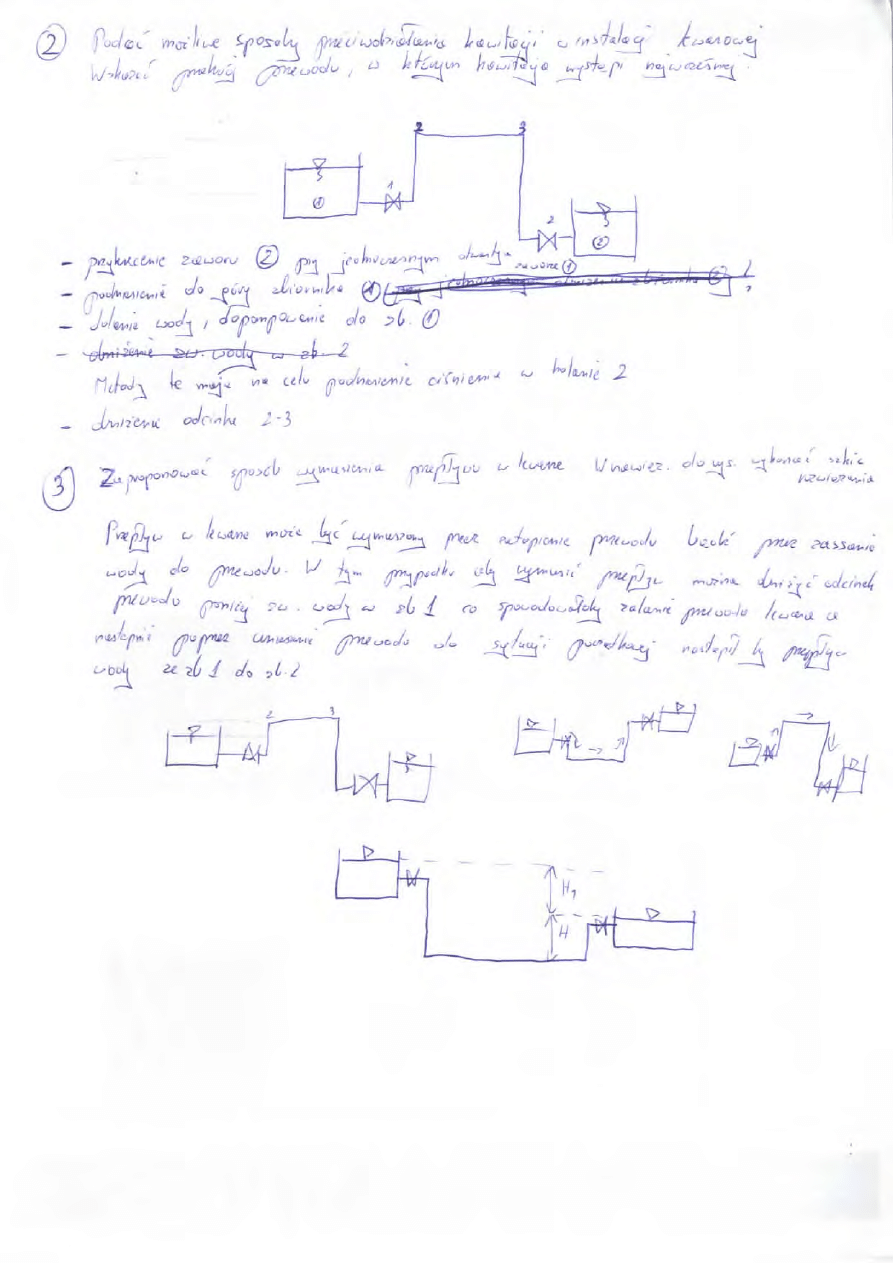 2 Podać możliwe sposoby przeciwdziałania kawitacji w instalacji lewarowej
Wskazać przekrój przewodu, w którym kawitacja wystąpi najwcześniej.
2 3
1
1
2
2
- przykręcenie zaworu 2 przy jednoczesnym otwarciu
zaworu 1
- podniesienie do góry zbiornika 1
- dolanie wody, dopompowanie do zb. 1
- obniżenie zw. wody w zb. 2
Metody te mają na celu podniesienie ciśnienia w kolanie 2
- obniżenie odcinka 2-3
3 Zaproponować sposób wymuszenia przepływu w lewarze W nawiąz. do rys. wykonać szkic
rozwiązania
Przepływ w lewarze może być wymuszony przez zatopienie przewodu bądź przez zassanie
wody do przewodu. W tym przypadku aby wymusić przepływ można obniżyć odcinek
przewodu poniżej zw. wody w zb 1 co spowodowałoby zalanie przewodu lewara a
następnie poprzez uniesienie przewodu do sytuacji początkowej nastąpił by przepływ
wody ze zb 1 do zb. 2
2 3
H1
H